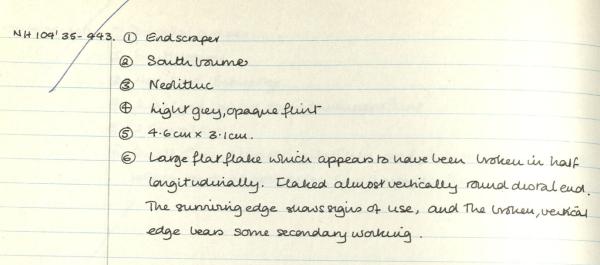 NH 104'35-443. ① Endscraper
② Southbourne
③ Neolithic
④ Light grey, opaque flint
⑤ 4.6cm x 3.1cm.
⑥ Large flat flake which appears to have been broken in half
longitudinally. Flaked almost vertically round distal end.
The surviving edge shows signs of use, and the broken, vertical
edge bears some secondary working.